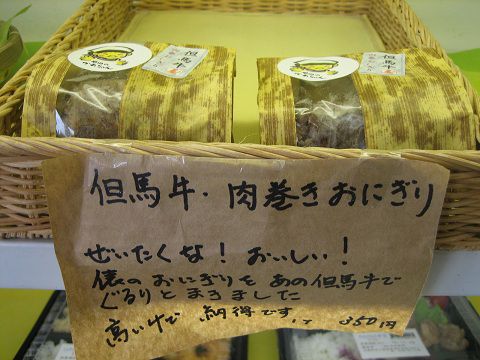 但馬牛
但馬牛
但馬牛・肉巻きおにぎり
ぜいたくな!おいしい!
俵のおにぎりをあの但馬牛で
ぐるりとまきました
高い牛で 納得です。 350円